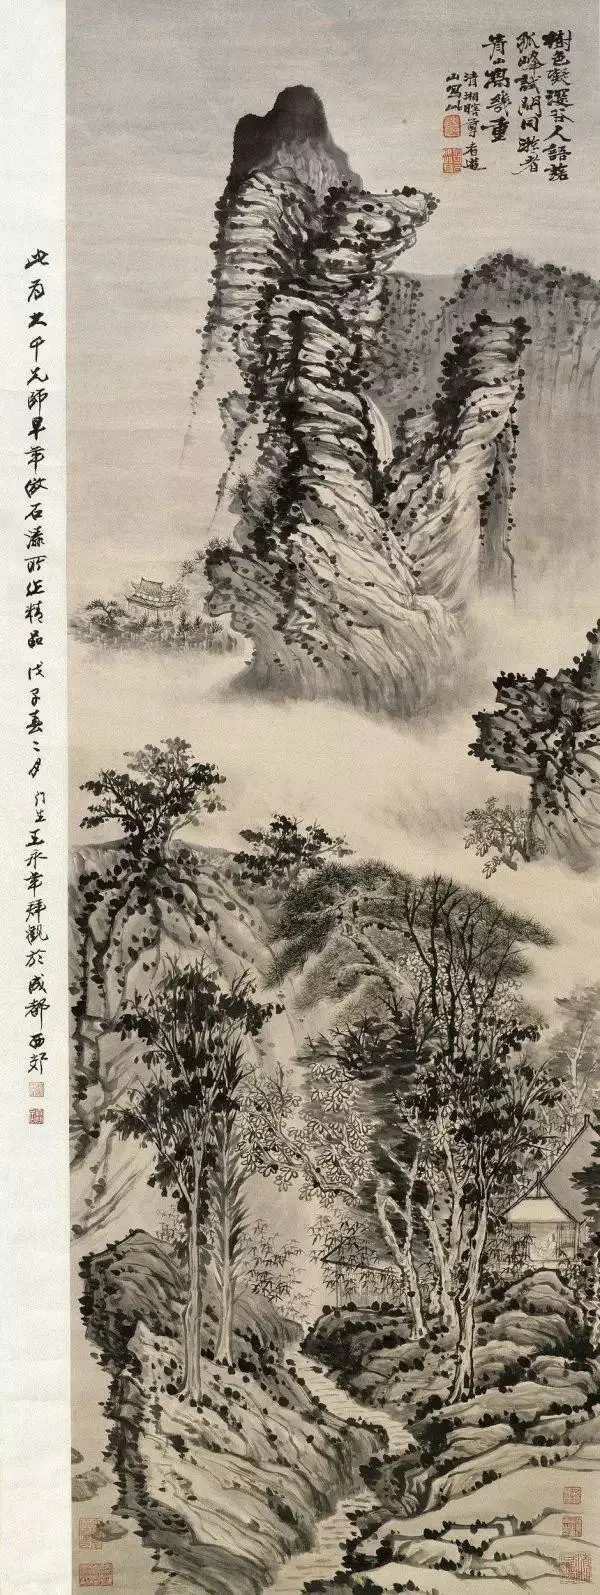 樹色凝溪谷人語諠
孤峰試問同遊者
青山寫幾重
清湘瞎尊者遊
山寫此
此為大千兄師早年倣石濤所作精品戊子春二月門生王永年拜觀於成都西郊